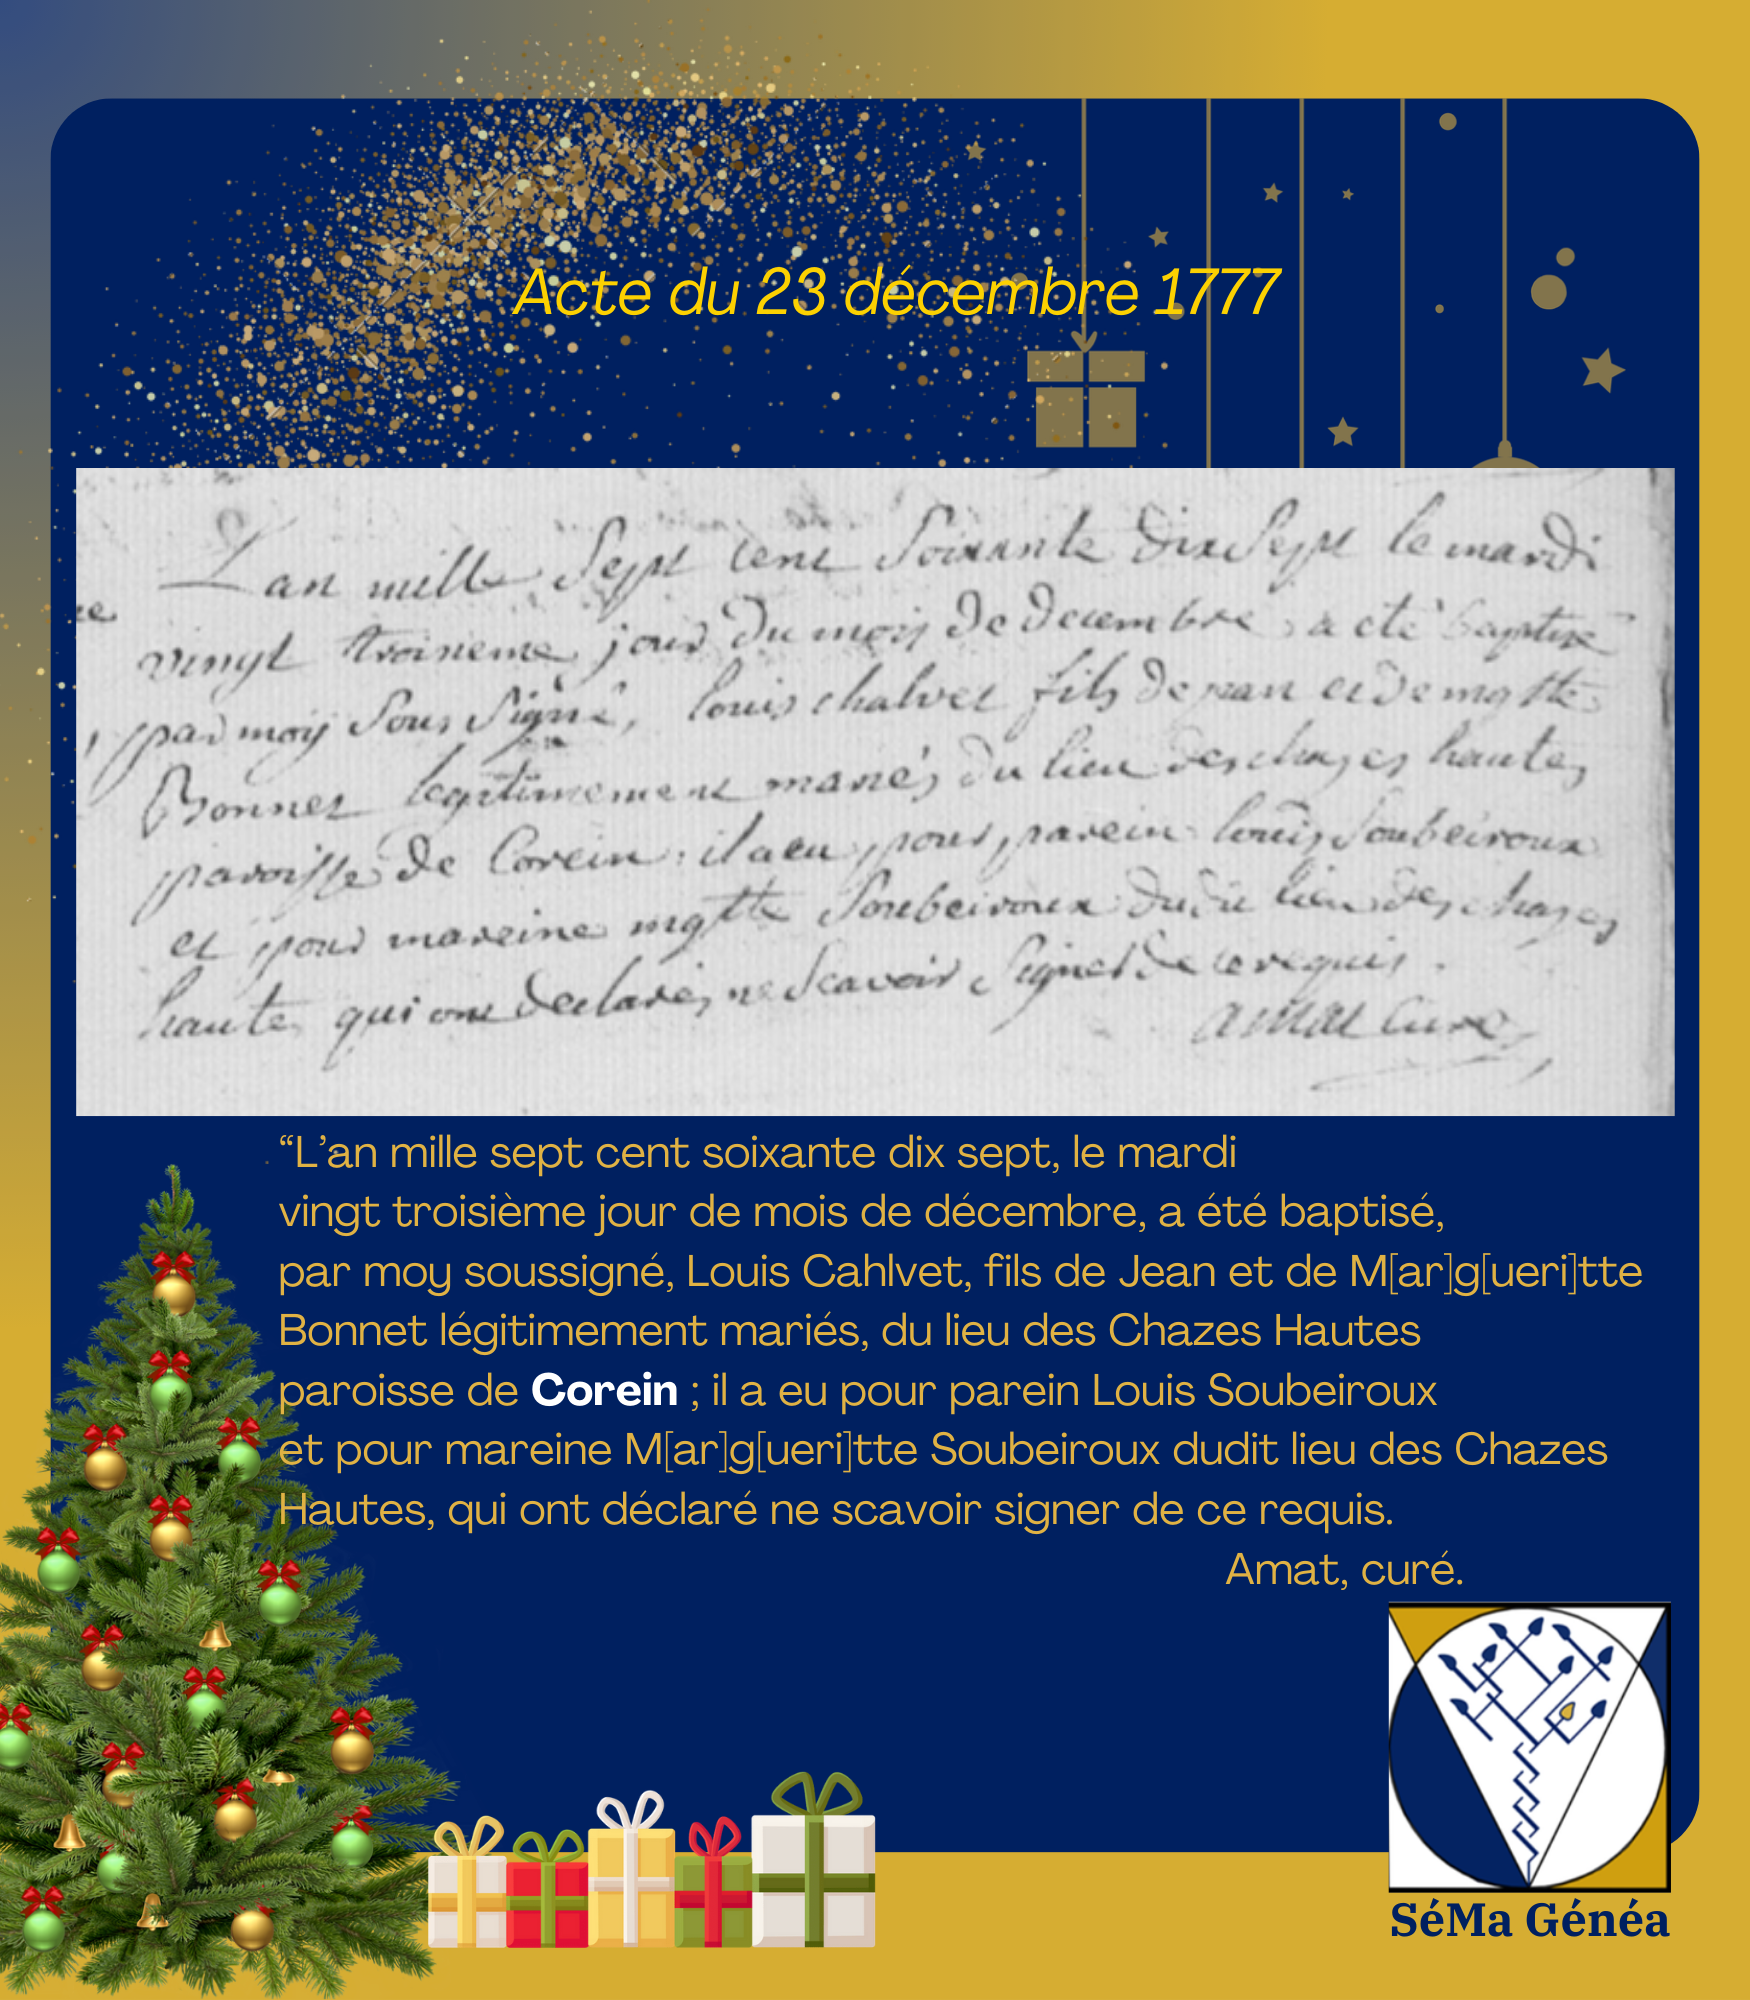 Acte du 23 décembre 1777
L'an mille Sept cent Soixante dix Sept le mardi
vingt troisieme jour du moy de decembre a eté baptisé
par moy Sous Signé, louis chalvet fils de jean et de mgtte
Bonnet legitimement mariés du lieu des chazes hautes
paroisse de Corein. il a eu pour parein louis Soubeiroux
et pour mareine mgtte Soubeiroux dudit lieu des chazes
haute qui ont declaré ne Scavoir Signer de ce requis.
amat Curé
“L’an mille sept cent soixante dix sept, le mardi
vingt troisième jour de mois de décembre, a été baptisé,
par moy soussigné, Louis Cahlvet, fils de Jean et de M[ar]g[ueri]tte
Bonnet légitimement mariés, du lieu des Chazes Hautes
paroisse de Corein ; il a eu pour parein Louis Soubeiroux
et pour mareine M[ar]g[ueri]tte Soubeiroux dudit lieu des Chazes
Hautes, qui ont déclaré ne scavoir signer de ce requis.
Amat, curé.
SéMa Généa